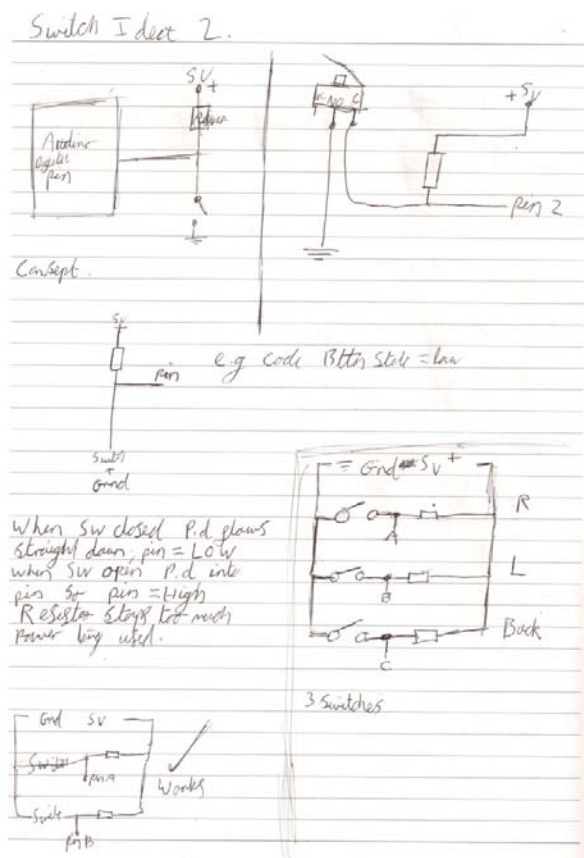 Switch Idect 2.
5V
+
Arduino
Digital
pin
NO C
+5V
pin 2
Consept.
5V
pin
Switch
+
Grnd
e.g code Bttn State = Low
When Sw closed P.d flows
straight down, pin = LOW
when SW open P.d into
pin so pin = High
Resistor stops too much
power being used.
Gnd 5V +
R
A
L
B
Back
C
3 Switches
Gnd 5V
Switch
pin A
Switch
pin B
Works